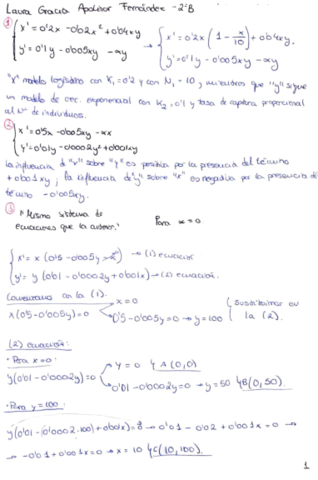 Laura Gracia Apolinar Fernández - 2ºB
① { x' = 0'2x - 0'02x² + 0'04xy
y' = 0'1y - 0'005xy - αy
→ { x' = 0'2x (1 - x/10) + 0'04xy
y' = 0'1y - 0'005xy - αy
"x" modelo logístico con K₁ = 0'2 y con N₁ = 10, mientras que "y" sigue
un modelo de crec. exponencial con K₂ = 0'1 y tasa de captura proporcional
al Nº de individuos.
② { x' = 0'5x - 0'005xy - αx
y' = 0'01y - 0'0002y² + 0'001xy
La influencia de "x" sobre "y" es positiva por la presencia del término
+0'001xy, la influencia de "y" sobre "x" es negativa por la presencia del
término -0'005xy.
③ "Mismo sistema de
ecuaciones que la anterior."
Para α = 0.
{ x' = x (0'5 - 0'005y) → (1) ecuación
y' = y (0'01 - 0'0002y + 0'001x) → (2) ecuación.
Comenzamos con la (1).
x(0'5 - 0'005y) = 0
x = 0
0'5 - 0'005y = 0 → y = 100
{ Sustituimos en
la (2).
(2) ecuación:
· Para x = 0:
y(0'01 - 0'0002y) = 0
y = 0 A(0,0)
0'01 - 0'0002y = 0 → y = 50 B(0,50).
· Para y = 100:
y(0'01 - (0'0002·100) + 0'001x) = 0 → 0'01 - 0'02 + 0'001x = 0 →
→ -0'01 + 0'001x = 0 → x = 10 C(10,100).
1